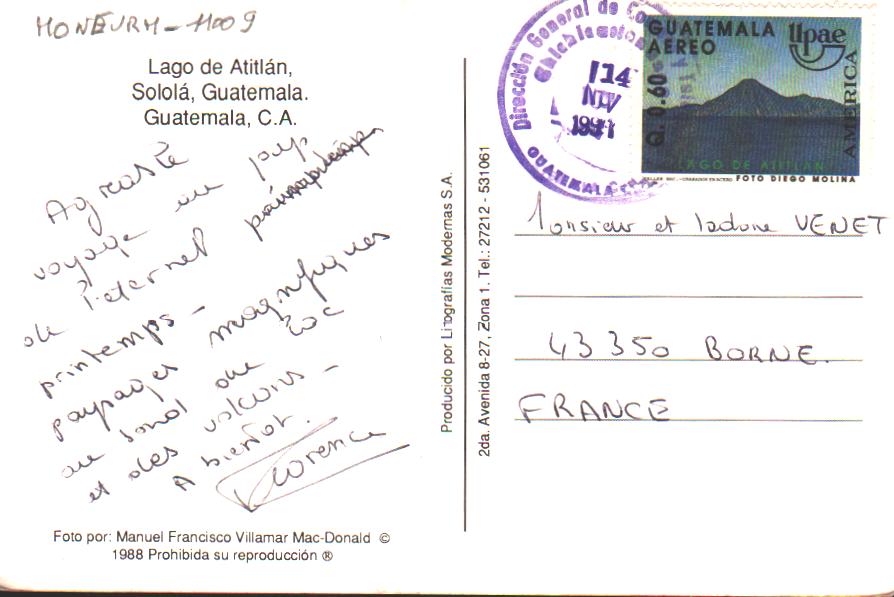 MONEURM - 11009
Lago de Atitlán,
Sololá, Guatemala.
Guatemala, C.A.
Agréable
voyage au pays
de l'éternel
printemps -
paysages magnifiques
au bord du lac
et des volcans -
A bientôt.
Florence
Foto por: Manuel Francisco Villamar Mac-Donald ©
1988 Prohibida su reproducción ®
Producido por Litografías Modernas S.A.
2da. Avenida 8-27, Zona 1. Tel.: 27212 - 531061
Dirección General de
GUATEMALA
14
NOV
GUATEMALA
AEREO
upae
AMERICA
Q. 0.60
LAGO DE ATITLAN
FOTO DIEGO MOLINA
Monsieur et Madame VENET
43350 BORNE.
FRANCE